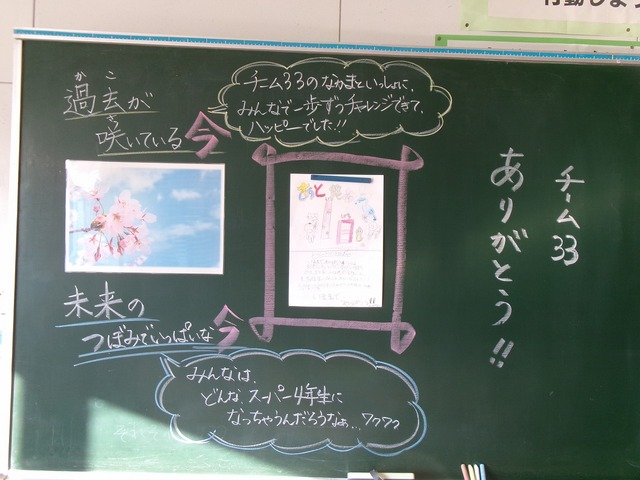 行動しよう
チーム33
ありがとう!!
過去が
かこ
咲いている今
さ
チーム33のなかまといっしょに、
みんなで一歩ずつチャレンジできて、
ハッピーでした!!
未来の
つぼみでいっぱいな今
みんなは、
どんな、スーパー4年生に
なっちゃうんだろうなぁ…ワクワク